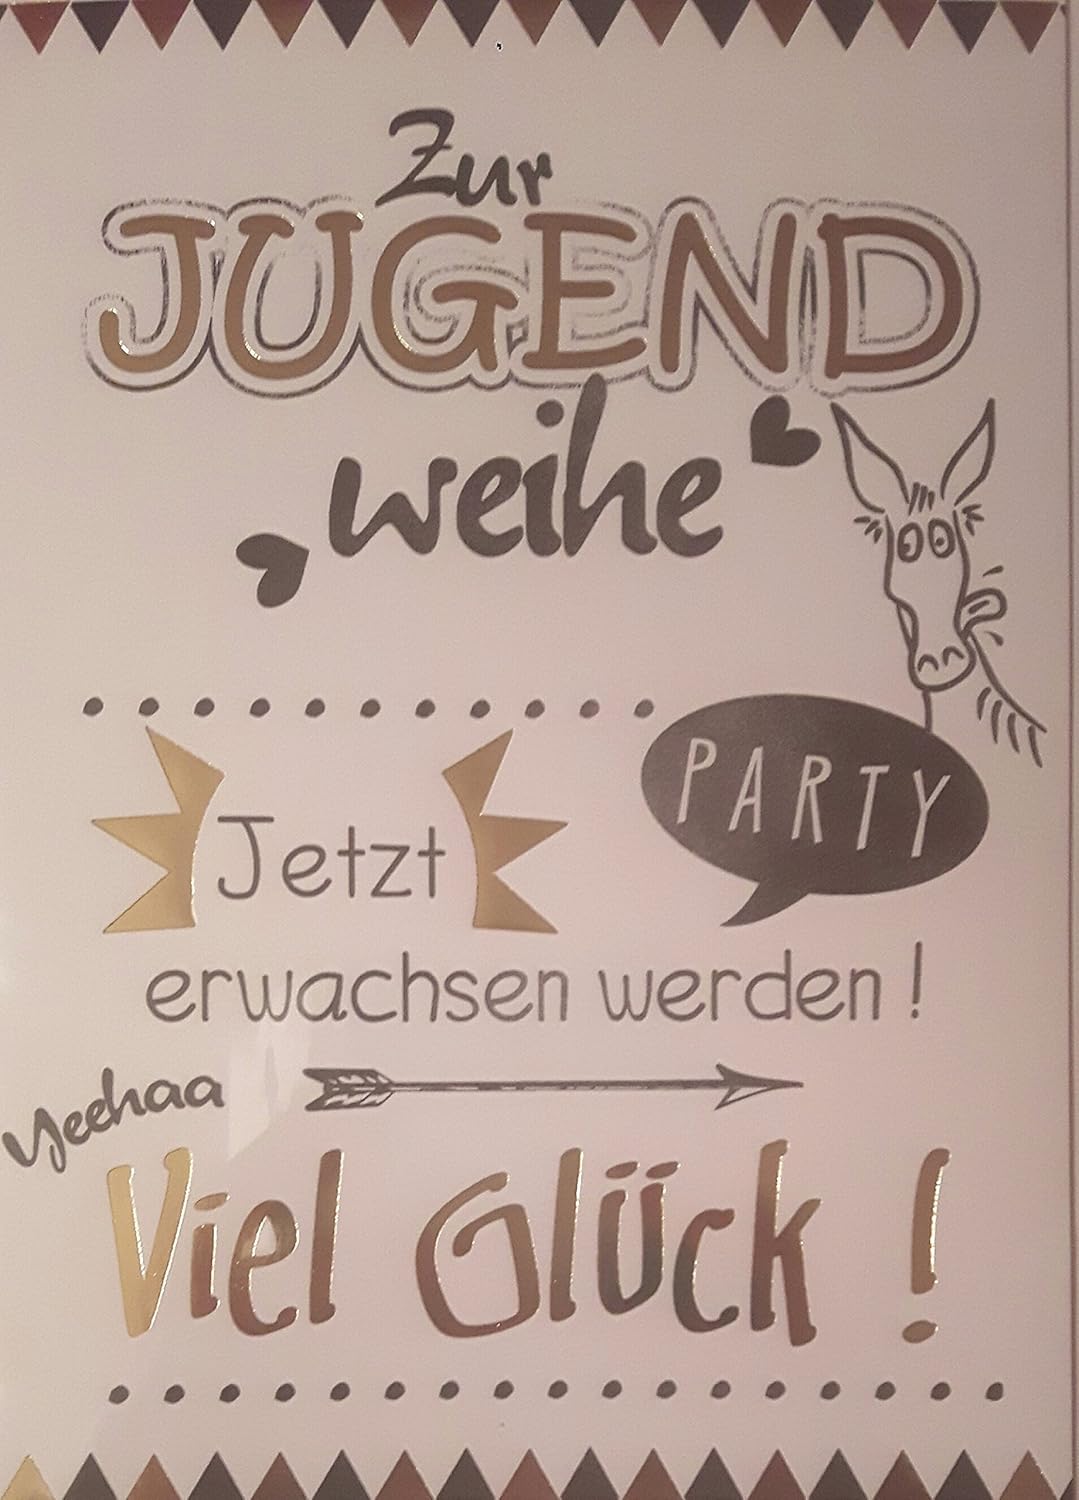 Zur
JUGEND
weihe
PARTY
Jetzt
erwachsen werden!
Yeehaa
Viel Glück!